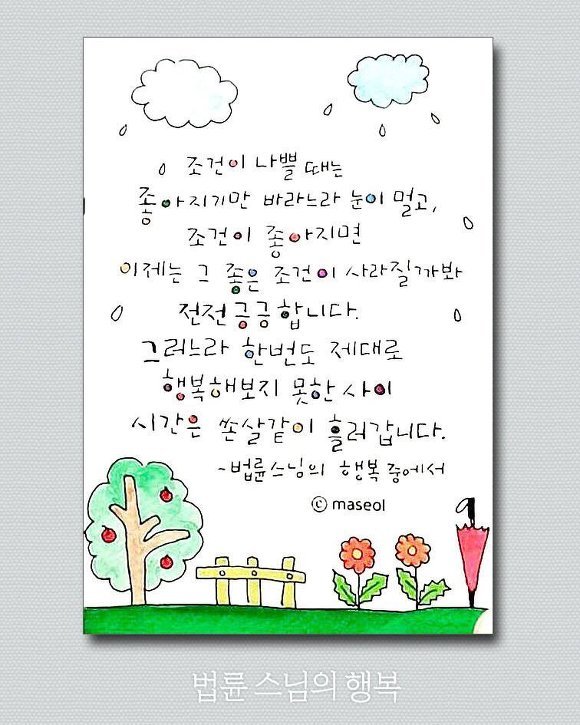 조건이 나쁠 때는
좋아지기만 바라느라 눈이 멀고,
조건이 좋아지면
이제는 그 좋은 조건이 사라질까봐
전전긍긍합니다.
그러느라 한번도 제대로
행복해보지 못한 사이
시간은 쏜살같이 흘러갑니다.
~법륜스님의 행복 중에서
ⓒ maseol
법륜 스님의 행복